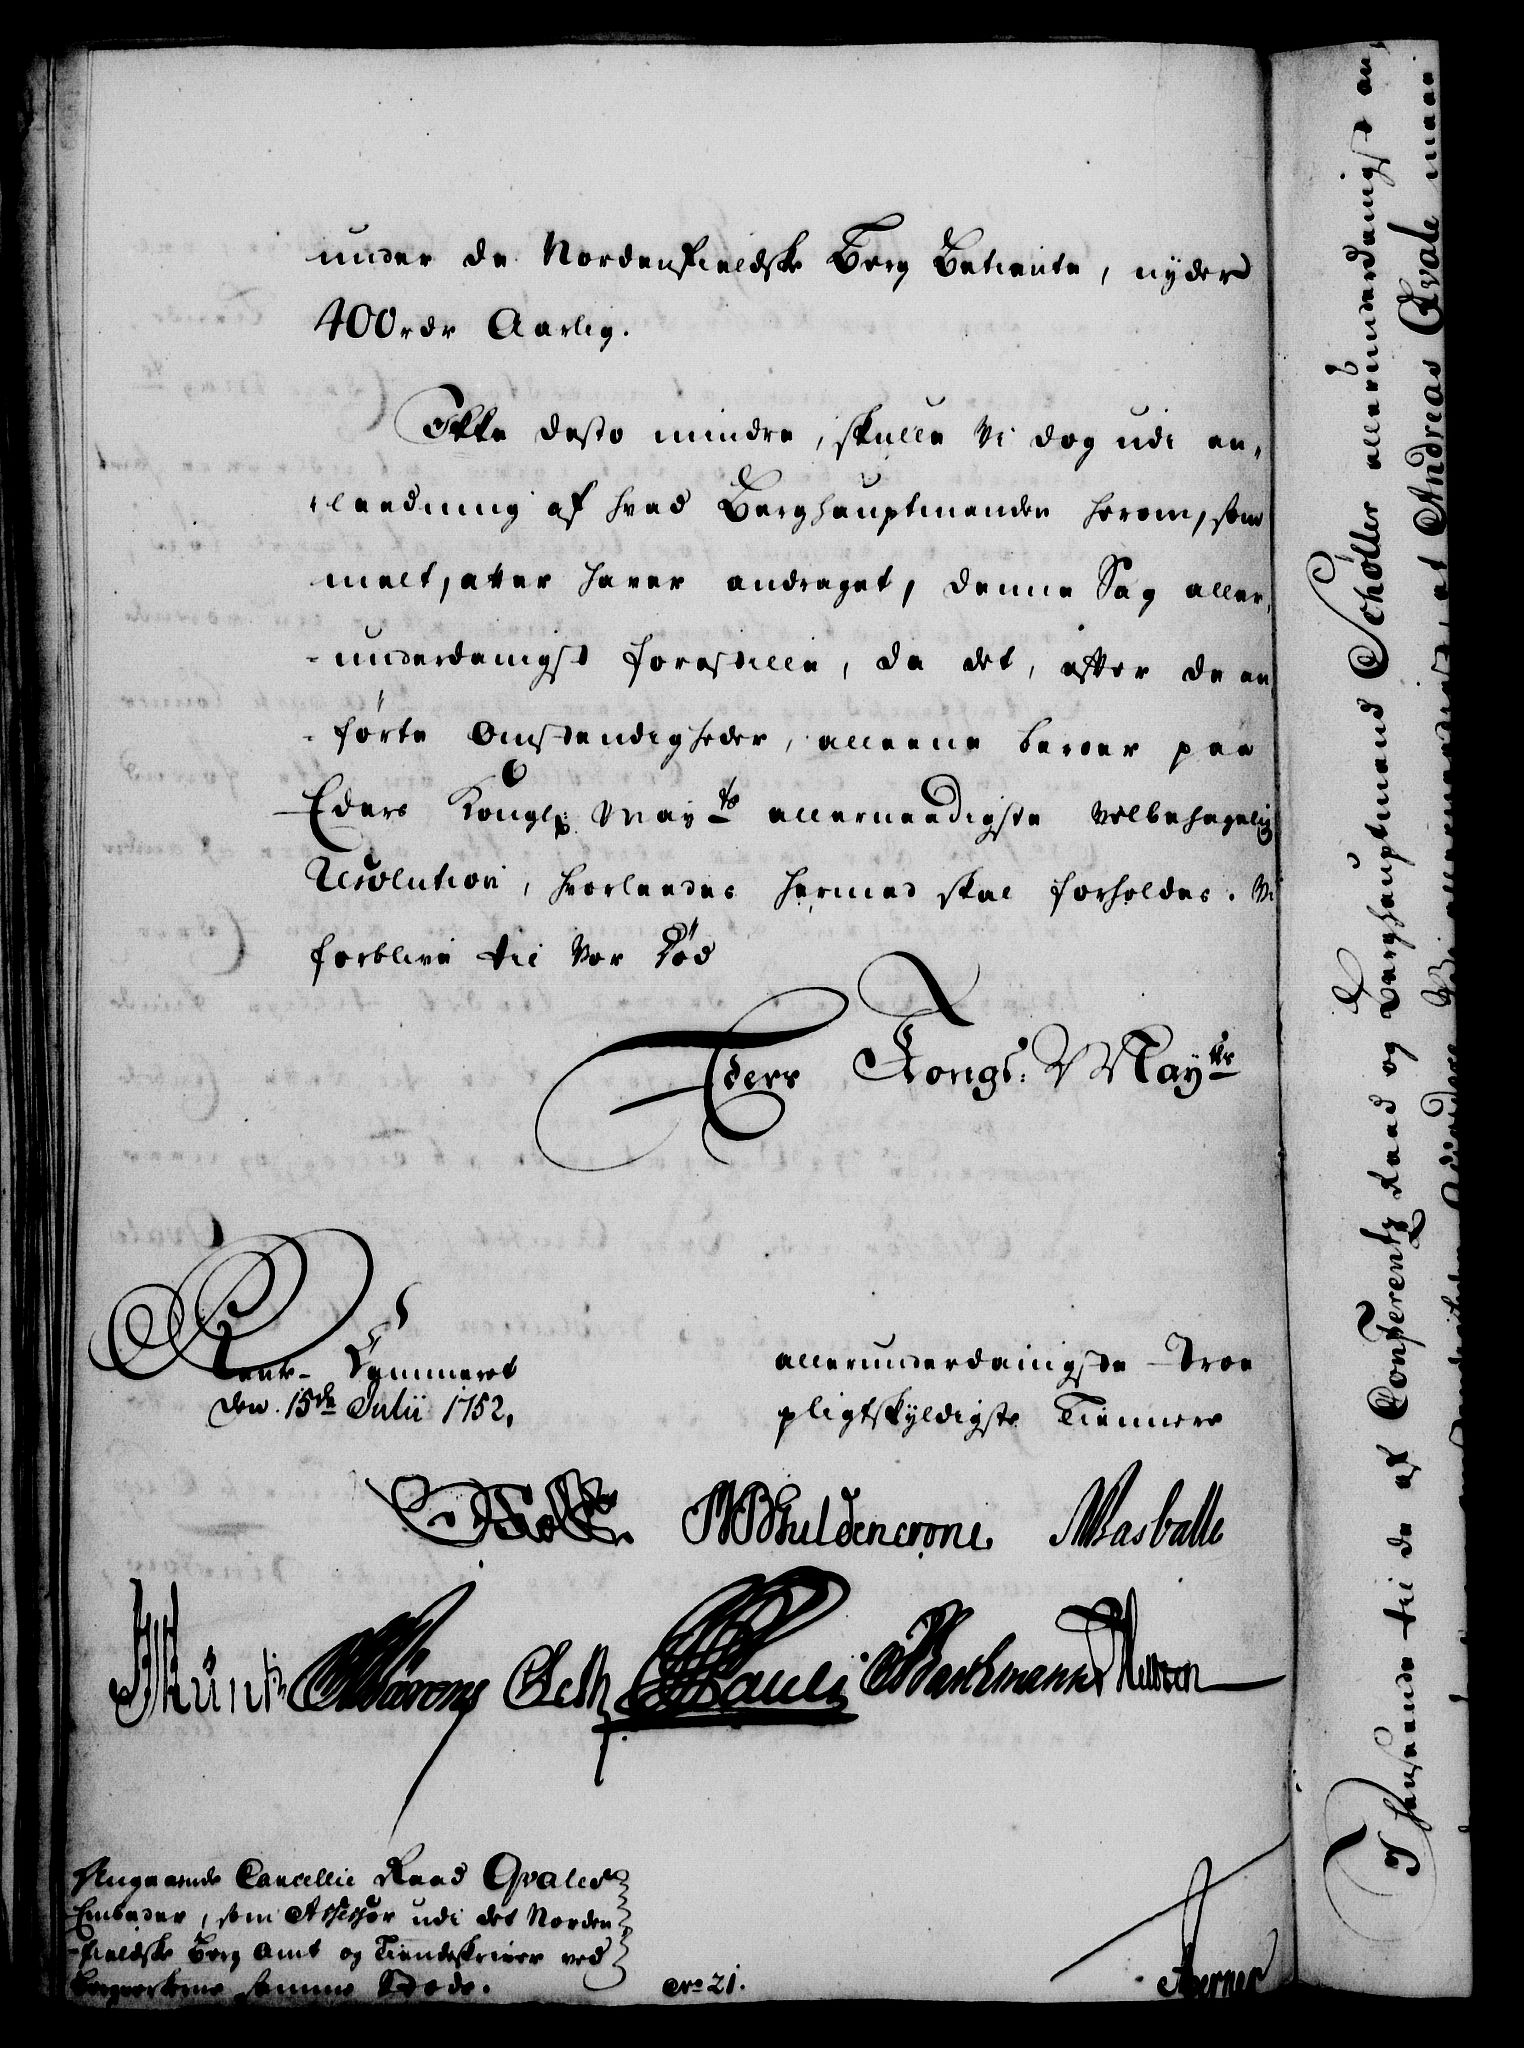 under de Nordenfieldske Berg Betiente, nyder
400 rdr Aarlig.
Ikke desto mindre, skulle Vi dog udi an-
-leedning af hvad Berghauptmanden herom, som
melt, atter haver andraget, denne Sag aller-
-underdanigst forestille, da det, efter de an
-førte Omstændigheder, alleene beroer paa
Eders Kongl. May.ts allernaadigste Velbehagelig
Resolution, hvorleedes hermed skal forholdes. Vi
forblive til Vor Død
Eders Kongs: May.ts
Rente-Cammeret
den 15de Julii 1752.
allerunderdanigste Troe
pligtskyldigste Tiennere
Guldencrone. Masballe
Pauli Barchmann
Angaaende Cancellie Raad Qvales
Embeder, som Assessor udi det Norden
-fieldske Berg Amt og Tiendeskriver ved
Bergverkerne samme Stæds.
No 21.
I Henseende til de af Conferentz Raad og Berghauptmand Schøller allerunderdanigst an-
at Andreas Qvale maae